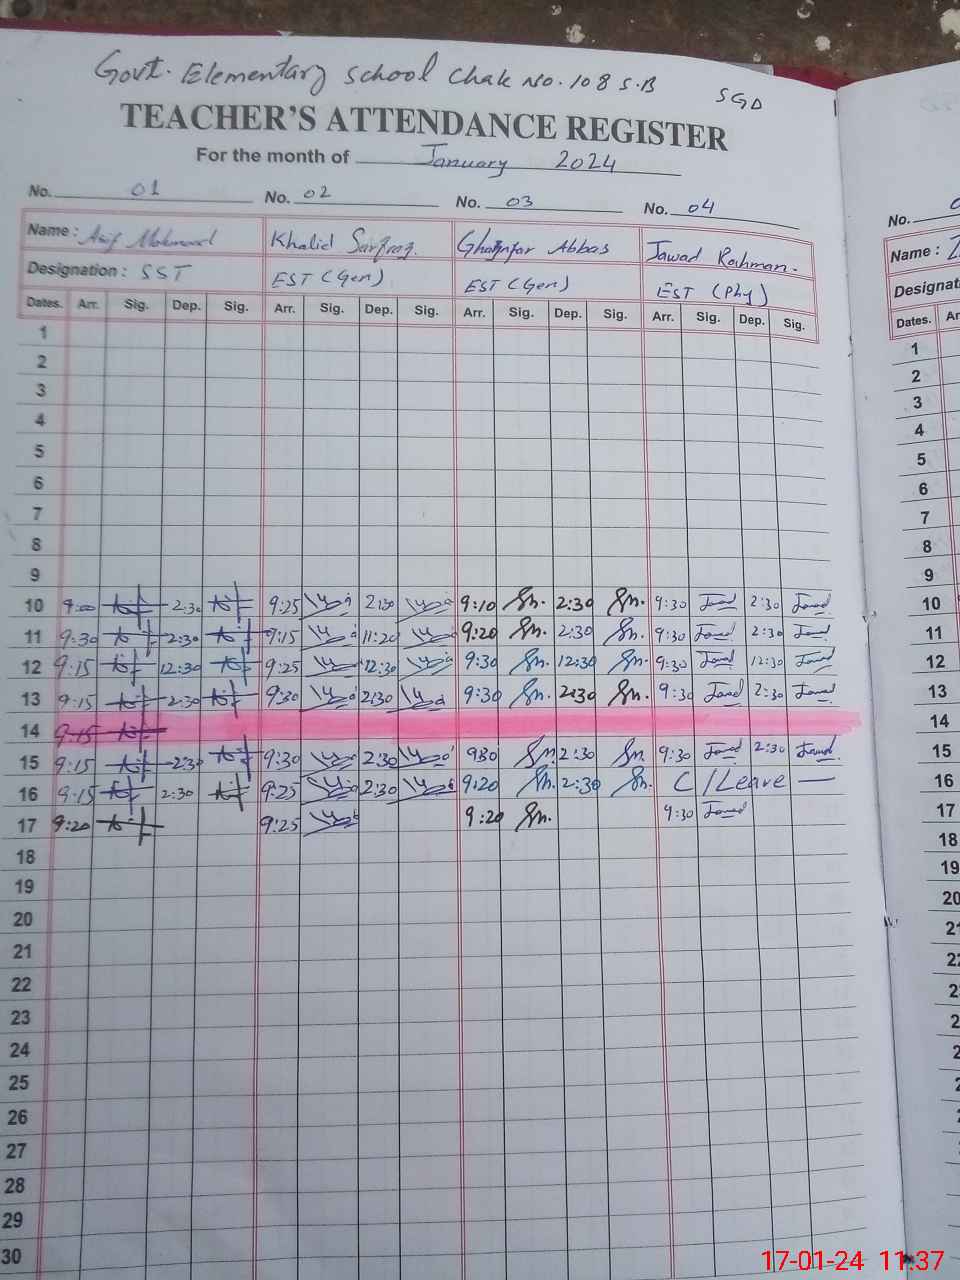 Govt. Elementary School Chak No. 108 S.B SGD
TEACHER'S ATTENDANCE REGISTER
For the month of January 2024
No. 01 No. 02 No. 03 No. 04 No.
Name : Asif Mahmood Khalid Sarfraz. Abbas Jawad Rahman. Name :
Designation : SST EST (Gen) EST (Gen) EST (Phy)
Dates. Arr. Sig. Dep. Sig. Arr. Sig. Dep. Sig. Arr. Sig. Dep. Sig. Arr. Sig. Dep. Sig. Dates.
1 1
2 2
3 3
4 4
5 5
6 6
7 7
8 8
9 9
10 9:00 2:30 9:25 2:30 9:10 2:30 9:30 Jawad 2:30 Jawad 10
11 9:30 2:30 9:15 11:20 9:20 2:30 9:30 Jawad 2:30 Jawad 11
12 9:15 12:30 9:25 12:30 9:30 12:30 9:30 Jawad 12:30 Jawad 12
13 9:15 2:30 9:30 2:30 9:30 2:30 9:30 Jawad 2:30 Jawad 13
14 9:15 14
15 9:15 2:30 9:30 2:30 930 2:30 9:30 Jawad 2:30 Jawad 15
16 9:15 2:30 9:25 2:30 9:20 2:30 C/Leave — 16
17 9:20 9:25 9:20 9:30 Jawad 17
18 18
19 19
20 20
21
22
23
24
25
26
27
28
29
30
17-01-24 11:37